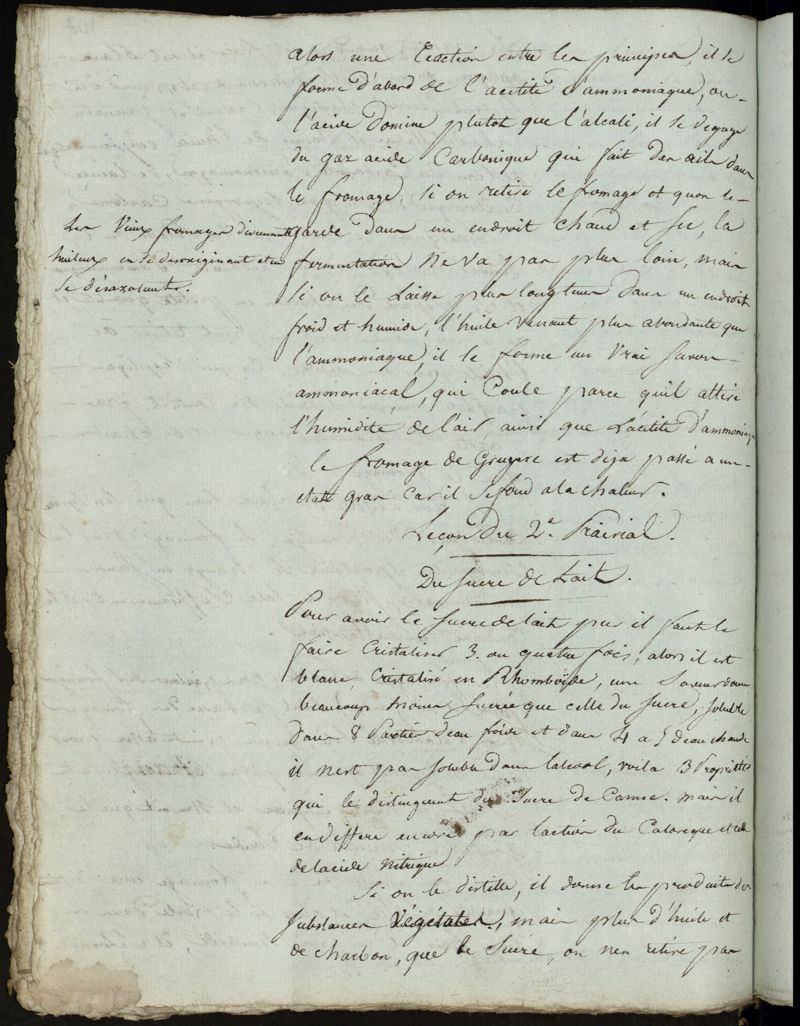 alors une reaction entre les principes, il se
forme d'abord de l'acetite d'ammoniaque, ou
l'acide domine plutot que l'alcali, il se degage
du gaz acide Carbonique qui fait des oeils dans
le fromage, si on retire le fromage et quon le
garde dans un endroit chaud et sec, la
fermentation ne va pas plus loin, mais
si on le Laisse plus longtems dans un endroit
froid et humide, l'huile venant plus abondante que
l'ammoniaque, il se forme un vrai savon
ammoniacal, qui Coule parce quil attire
l'humidité de l'air, ainsi que L'acetite d'ammoniaq
le fromage de Gruyere est deja passé a un
etat gras Car il se fond a la chaleur.
Les Vieux fromages deviennent
huileux en se desoxiginant et en
se désazotants.
Leçon Du 2e. Prairial.
Du Sucre de Lait.
Pour avoir le Sucre de lait pur il faut le
faire Cristaliser 3. ou quatre fois, alors il est
blanc, Cristalisé en Rhomboïde, une Saveur douce
beaucoup moins Sucrée que celle du Sucre, soluble
dans 8 Parties d'eau froide et dans 4 a 5 d'eau chaude
il n'est pas soluble dans lalcool, voila 3 Propriétés
qui le distinguent du Sucre de Canne. mais il
en differe encore par laction du Calorique et celle
de lacide Nitrique
Si on le distille, il donne les produits des
Substances Végétales, mais plus d'huile et
de charbon, que le Sucre, on n'en retire pas